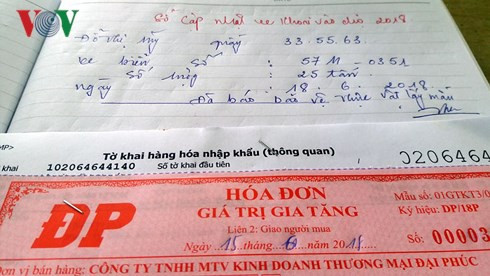 VOV
Sổ cập nhật xe khoai vào dio 2018
Đỗ thị Mỹ máy 33.55.63
xe biển số : 57M 0351
Số : 25 tấn
ngày : 18.6.2018
Đã báo bảo vệ thực vật lấy mẫu
MP>
Tờ khai hàng hóa nhập khẩu (thông quan)
khai 102064644140 Số tờ khai đầu tiên 0206464
ĐP
HÓA ĐƠN
GIÁ TRỊ GIA TĂNG
Liên 2: Giao người mua
Ngày 15 tháng 6 năm 2018
Mẫu số: 01GTKT3/0
Ký hiệu: DP/18P
Số: 00003
Đơn vị bán hàng: CÔNG TY TNHH MTV KINH DOANH THƯƠNG MẠI ĐẠI PHÚC